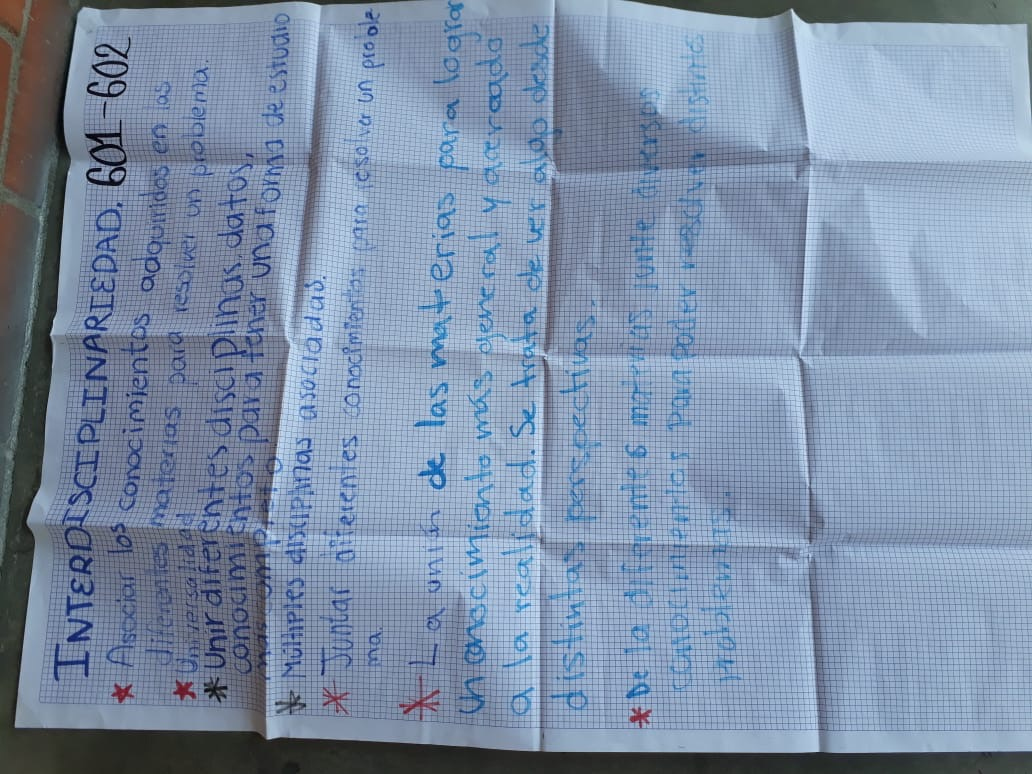 INTERDISCIPLINARIEDAD. 601-602
Asociar los conocimientos adquiridos en las
diferentes materias para resolver un problema.
Universalidad
Unir diferentes disciplinas, datos,
conocimientos para tener una forma de estudio
mas completo.
Multiples disciplinas asociadas.
Juntar diferentes conocimientos para resolver un proble
ma.
La unión de las materias para lograr
un conocimiento más general y acercado
a la realidad. Se trata de ver algo desde
distintas perspectivas.
De la diferentes materias junte diversos
conocimientos para poder resolver distintos
problemas.